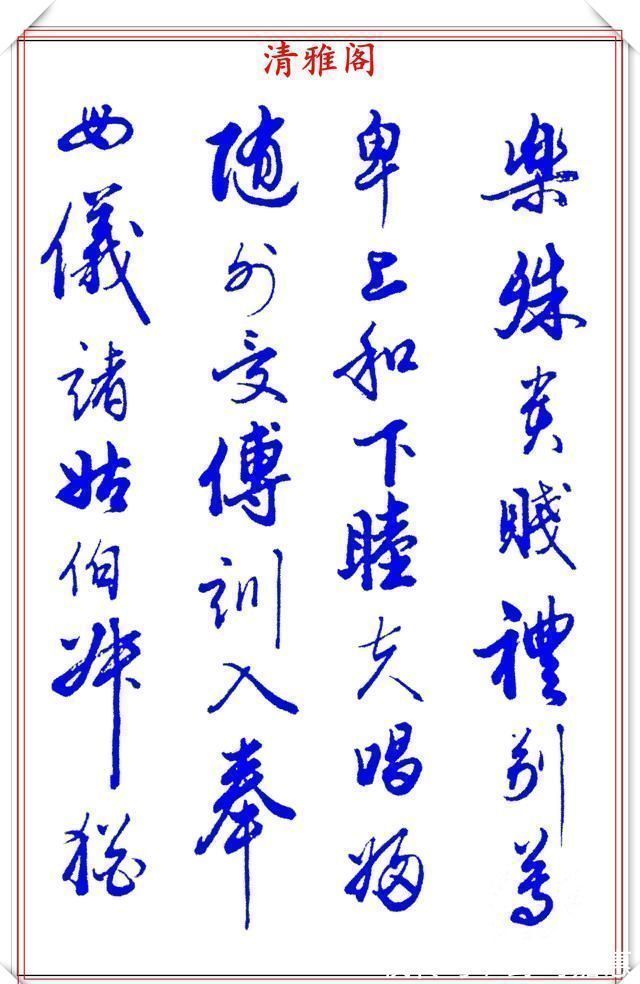 清雅阁
樂殊貴賤禮別尊
卑上和下睦夫唱婦
隨外受傅訓入奉
母儀諸姑伯叔猶